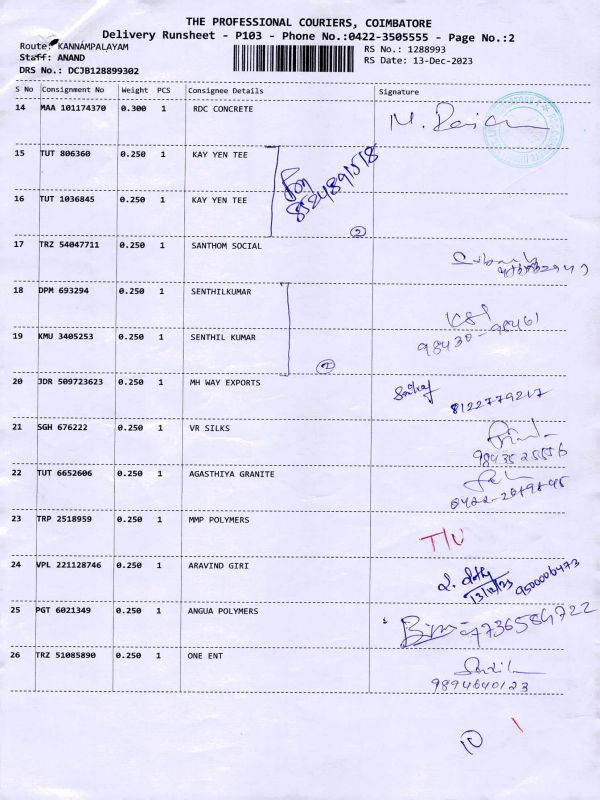 THE PROFESSIONAL COURIERS, COIMBATORE
Delivery Runsheet - P103 - Phone No.:0422-3505555 - Page No.:2
Route: KANNAMPALAYAM RS No.: 1288993
Staff: ANAND RS Date: 13-Dec-2023
DRS No.: DCJB128899302
S No Consignment No Weight PCS Consignee Details Signature
14 MAA 101174370 0.300 1 RDC CONCRETE
15 TUT 806360 0.250 1 KAY YEN TEE
16 TUT 1036845 0.250 1 KAY YEN TEE
8524891518
2
17 TRZ 54047711 0.250 1 SANTHOM SOCIAL
18 DPM 693294 0.250 1 SENTHILKUMAR
19 KMU 3405253 0.250 1 SENTHIL KUMAR
98430-98461
2
20 JDR 509723623 0.250 1 MH WAY EXPORTS
8122779217
21 SGH 676222 0.250 1 VR SILKS
22 TUT 6652606 0.250 1 AGASTHIYA GRANITE
23 TRP 2518959 0.250 1 MMP POLYMERS
24 VPL 221128746 0.250 1 ARAVIND GIRI
13/12/23 9500006473
25 PGT 6021349 0.250 1 ANGUA POLYMERS
26 TRZ 51085890 0.250 1 ONE ENT
9894640123
10 1